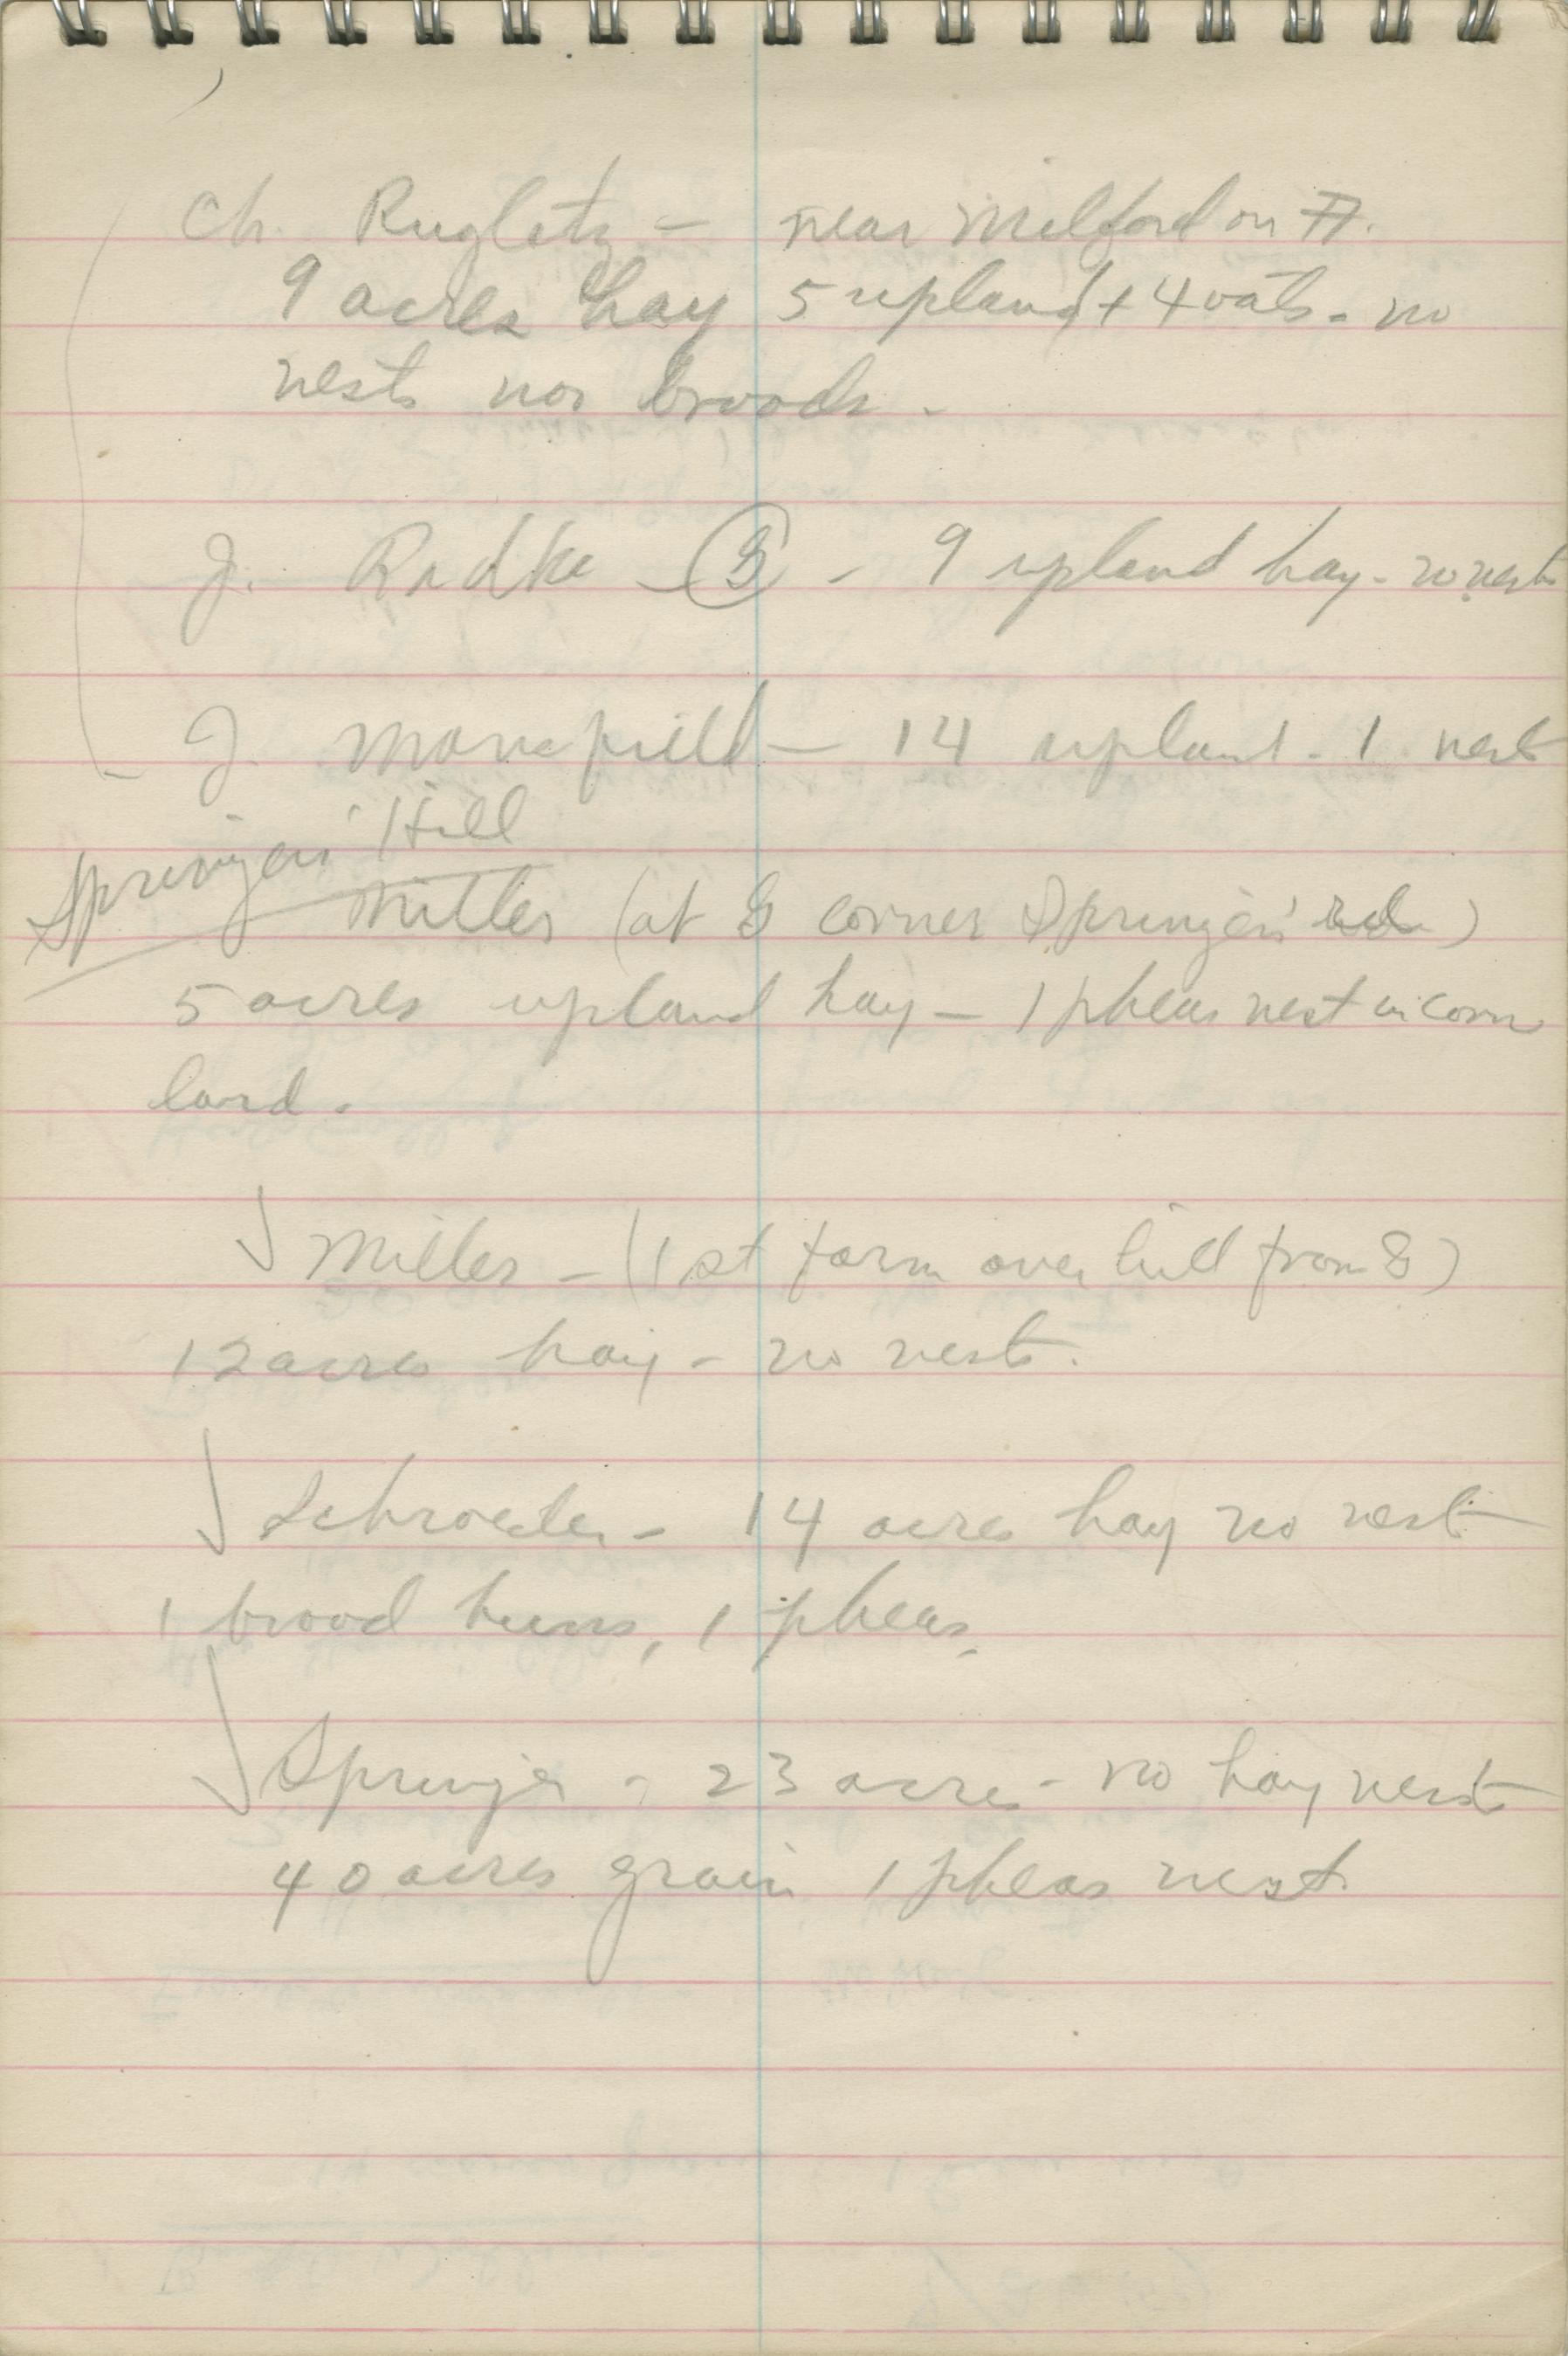 Ch. Rugletz - near Milford on
9 acres hay 5 upland + 4 oats - no
nests nor broods.
J. Radke - - 9 upland hay - no nests
J. Mansfield - 14 upland - 1 nest
Springers' Hill
Miller (at G corner Springers' )
5 acres upland hay - 1 pheas nest in corn
land.
Miller - (1st farm over hill from G)
12 acres hay - no nests.
Schroeder - 14 acres hay no nest
1 brood huns, 1 pheas.
Springer - 23 acres - no hay nests
40 acres grain 1 pheas nest.